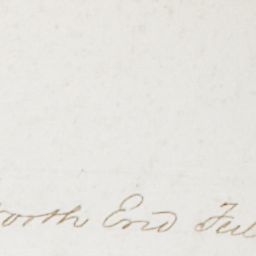 North End Ful